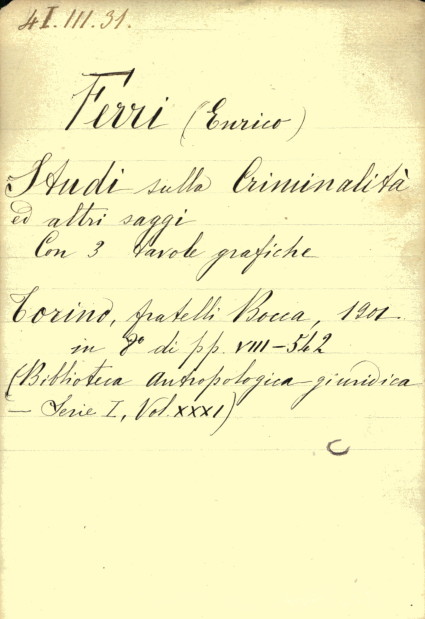 4I.III.31.
Ferri (Enrico)
Studi sulla Criminalità
ed altri saggi
Con 3 tavole grafiche
Torino, fratelli Bocca, 1901
in 8º di pp. VIII-542
(Biblioteca Antropologica-giuridica
— Serie I, Vol. XXXI)